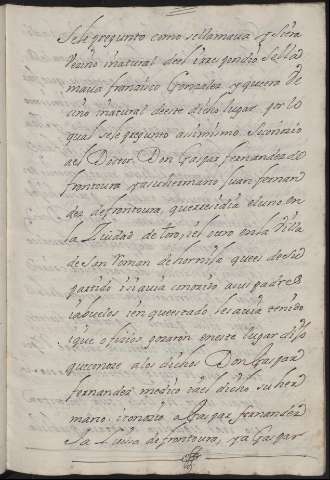 se le pregunto como se llamava y si era
vecino i natural del i respondio se lla
mava francisco Gonzalez y que era ve
cino i natural deeste dicho lugar por lo
qual se le pregunto asimismo si conocio
a el Doctor Don Gaspar fernandez de
frontoura y a su hermano Juan fernan
dez de frontoura, que residia el uno en
la Ciudad de toro, i el otro en la Villa
de San Roman de hornija que es de su
partido i si avia conocido a sus padres
i abuelos i en que estado se avia tenido
i que oficios gozaron en este lugar dijo
que conoze a los dichos Don Gaspar
fernandez medico i a el dicho su her
mano i conozio a Gaspar fernandez
de frontoura, y a Gaspar